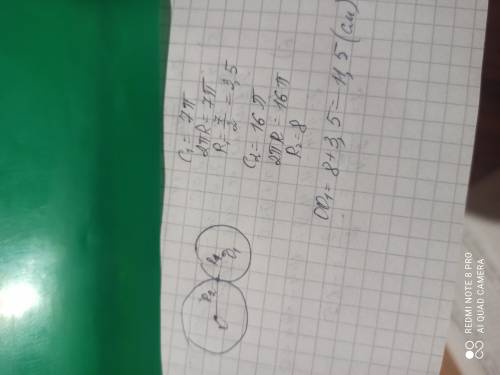 C₁ = 7π
2πR = 7π
R₁ = 7/2 = 3,5
C₂ = 16π
2πR = 16π
R₂ = 8
OO₁ = 8+3,5 = 11,5 (см)
O R₂
R₁ O₁
REDMI NOTE 8 PRO
AI QUAD CAMERA